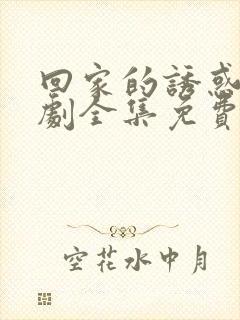 回家的誘惑
劇全集免費
空花水中月